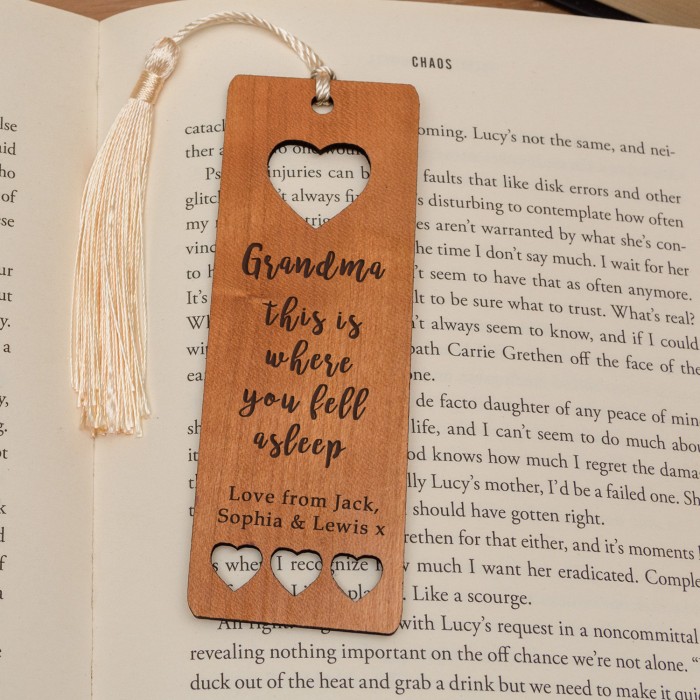 CHAOS
lse
aid
ho
of
ese
ur
ut
y.
a
y,
g.
ot
k
d
f
a
catacl oming. Lucy's not the same, and nei-
ther a o one would
Ps injuries can b faults that like disk errors and other
glitc 't always fi s disturbing to contemplate how often
my trig es aren't warranted by what she's con-
vinc he time I don't say much. I wait for her
to h 't seem to have that as often anymore.
It's lt to be sure what to trust. What's real?
W n't always seem to know, and if I could
wi path Carrie Grethen off the face of the
ea one.
de facto daughter of any peace of min
sh life, and I can't seem to do much abou
it od knows how much I regret the dama
lly Lucy's mother, I'd be a failed one. Sh
should have gotten right.
rethen for that either, and it's moments
s whe I recognize h w much I want her eradicated. Comple
. Like a scourge.
with Lucy's request in a noncommittal
revealing nothing important on the off chance we're not alone. "
duck out of the heat and grab a drink but we need to make it qu
Grandma
this is
where
you fell
asleep
Love from Jack,
Sophia & Lewis x